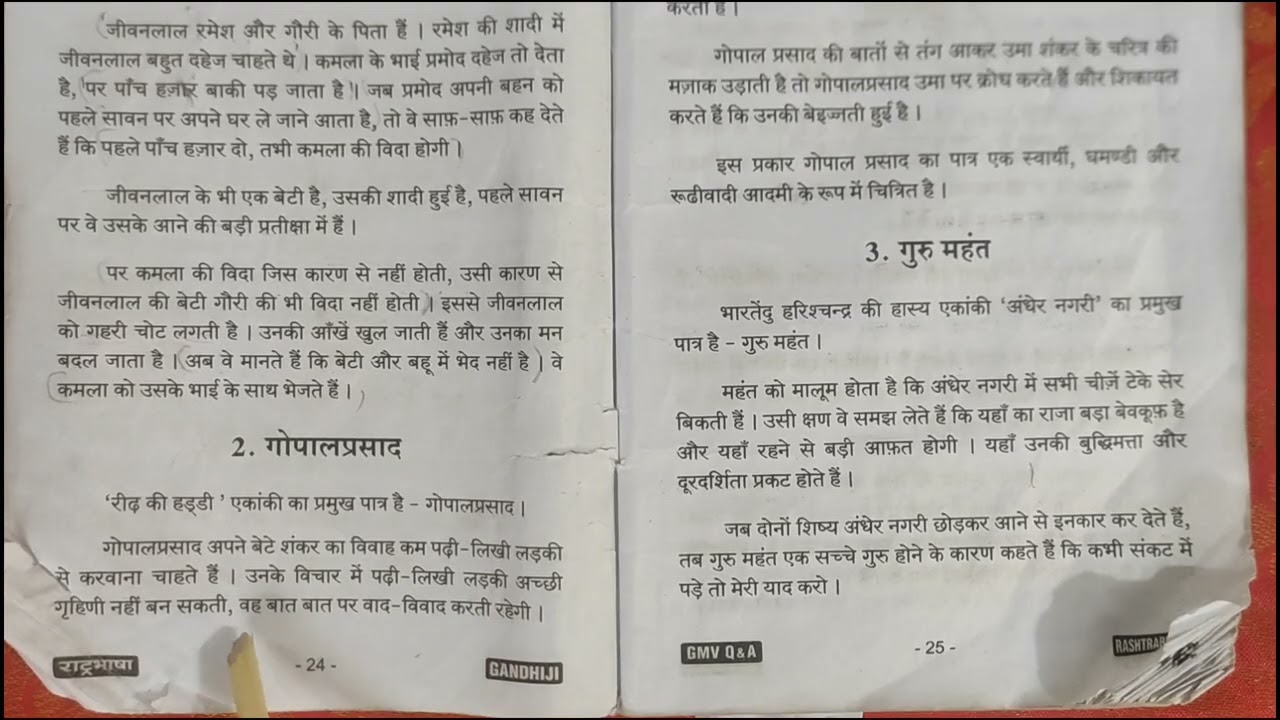 जीवनलाल रमेश और गौरी के पिता हैं । रमेश की शादी में
जीवनलाल बहुत दहेज चाहते थे । कमला के भाई प्रमोद दहेज तो देता
है, पर पाँच हज़ार बाकी पड़ जाता है । जब प्रमोद अपनी बहन को
पहले सावन पर अपने घर ले जाने आता है, तो वे साफ़-साफ़ कह देते
हैं कि पहले पाँच हज़ार दो, तभी कमला की विदा होगी ।
जीवनलाल के भी एक बेटी है, उसकी शादी हुई है, पहले सावन
पर वे उसके आने की बड़ी प्रतीक्षा में हैं ।
पर कमला की विदा जिस कारण से नहीं होती, उसी कारण से
जीवनलाल की बेटी गौरी की भी विदा नहीं होती । इससे जीवनलाल
को गहरी चोट लगती है । उनकी आँखें खुल जाती हैं और उनका मन
बदल जाता है । (अब वे मानते हैं कि बेटी और बहू में भेद नहीं है) वे
कमला को उसके भाई के साथ भेजते हैं ।
2. गोपालप्रसाद
‘रीढ़ की हड्डी ’ एकांकी का प्रमुख पात्र है - गोपालप्रसाद ।
गोपालप्रसाद अपने बेटे शंकर का विवाह कम पढ़ी-लिखी लड़की
से करवाना चाहते हैं । उनके विचार में पढ़ी-लिखी लड़की अच्छी
गृहिणी नहीं बन सकती, वह बात बात पर वाद-विवाद करती रहेगी ।
राट्रभाषा - 24 - GANDHIJI
करता है ।
गोपाल प्रसाद की बातों से तंग आकर उमा शंकर के चरित्र की
मज़ाक उड़ाती है तो गोपालप्रसाद उमा पर क्रोध करते हैं और शिकायत
करते हैं कि उनकी बेइज्जती हुई है ।
इस प्रकार गोपाल प्रसाद का पात्र एक स्वार्थी, घमण्डी और
रूढीवादी आदमी के रूप में चित्रित है ।
3. गुरु महंत
भारतेंदु हरिश्चन्द्र की हास्य एकांकी ‘अंधेर नगरी’ का प्रमुख
पात्र है - गुरु महंत ।
महंत को मालूम होता है कि अंधेर नगरी में सभी चीज़ें टेके सेर
बिकती हैं । उसी क्षण वे समझ लेते हैं कि यहाँ का राजा बड़ा बेवकूफ़ है
और यहाँ रहने से बड़ी आफ़त होगी । यहाँ उनकी बुद्धिमत्ता और
दूरदर्शिता प्रकट होते हैं ।
जब दोनों शिष्य अंधेर नगरी छोड़कर आने से इनकार कर देते हैं,
तब गुरु महंत एक सच्चे गुरु होने के कारण कहते हैं कि कभी संकट में
पड़े तो मेरी याद करो ।
GMV Q & A - 25 -